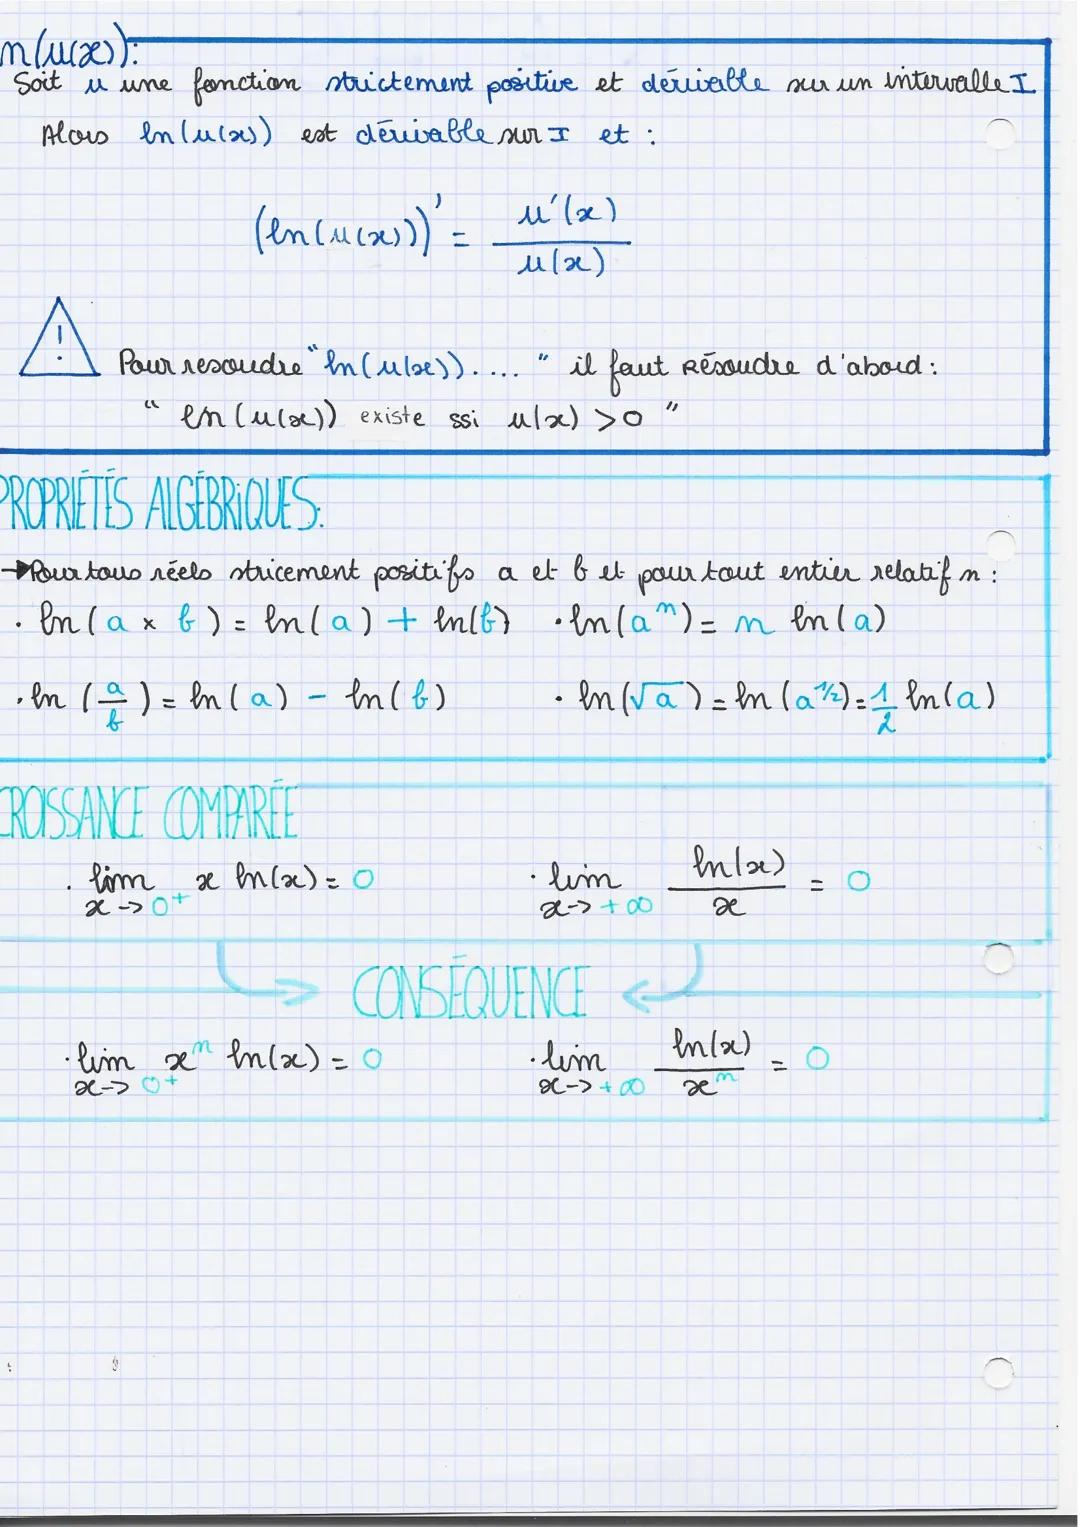 n(u(x)):
Soit u une fonction strictement positive et dérivable sur un intervalle I
Alors ln(u(x)) est dérivable sur I et :
(ln(u(x)))' = u'(x) / u(x)
!
Pour resoudre "ln(u(x))...." il faut résoudre d'abord :
"ln(u(x)) existe ssi u(x) > 0"
PROPRIÉTÉS ALGÉBRIQUES:
→ Pour tous réels stricement positifs a et b et pour tout entier relatif n :
· ln(a × b) = ln(a) + ln(b) · ln(aⁿ) = n ln(a)
· ln(a/b) = ln(a) - ln(b) · ln(√a) = ln(a^1/2) = 1/2 ln(a)
CROISSANCE COMPARÉE
· lim x→0+ x ln(x) = 0 · lim x→+∞ ln(x)/x = 0
CONSÉQUENCE
· lim x→0+ xⁿ ln(x) = 0 · lim x→+∞ ln(x)/xⁿ = 0